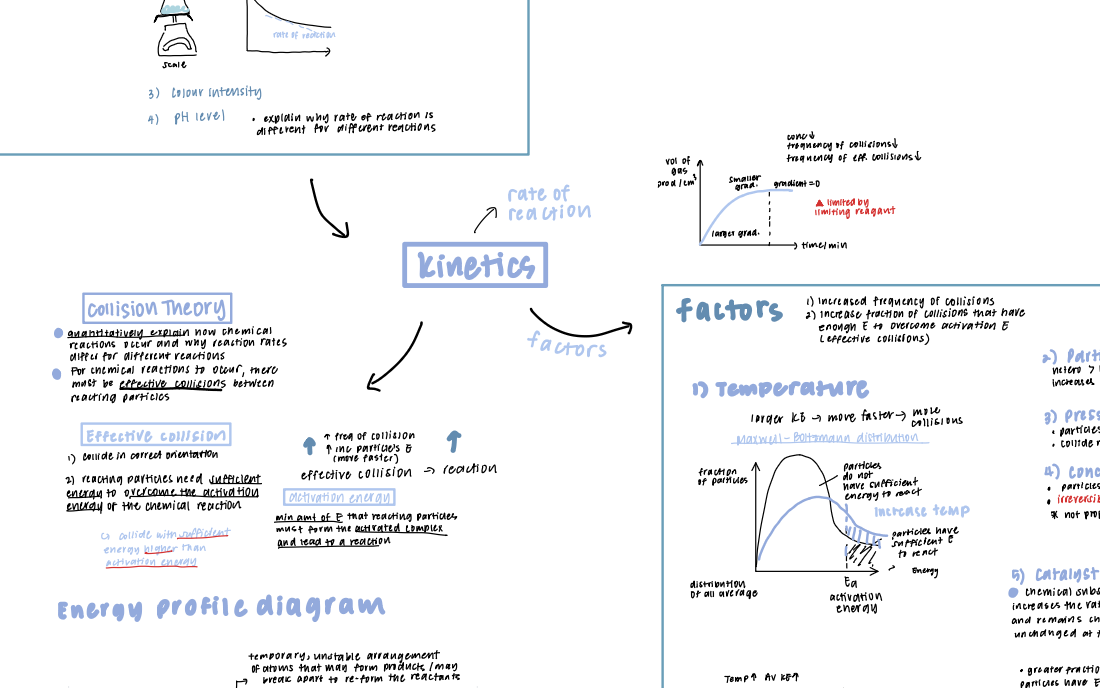 rate of reaction
scale
3) Colour intensity
4) pH level
• explain why rate of reaction is
different for different reactions
conc↓
frequency of collisions↓
frequency of eff. collisions↓
vol of
gas
prod / cm³
smaller
grad.
gradient = 0
▲ limited by
limiting reagant
larger grad.
time/min
rate of
reaction
kinetics
factors
Collision Theory
quantitatively explain how chemical
reactions occur and why reaction rates
differ for different reactions
For chemical reactions to occur, there
must be effective collisions between
reacting particles
Effective collision
1) collide in correct orientation
2) reacting particles need sufficient
energy to overcome the activation
energy of the chemical reaction
↳ collide with sufficient
energy higher than
activation energy
↑ freq of collision
↑ inc particle's E
(move faster)
effective collision → reaction
activation energy
min amt of E that reacting particles
must form the activated complex
and lead to a reaction
Energy profile diagram
temporary, unstable arrangement
of atoms that may form products / may
break apart to re-form the reactants
factors
1) Increased frequency of collisions
2) Increase fraction of collisions that have
enough E to overcome activation E
(effective collisions)
1) Temperature
larger KE → move faster → more
collisions
Maxwell-Boltzmann distribution
fraction
of particles
particles
do not
have sufficient
energy to react
Increase temp
particles have
sufficient E
to react
Energy
distribution
of all average
Ea
activation
energy
Temp↑ AV KE↑
2) Part
hetero >
increases
3) Press
• particles
• collide
4) Conc
• particles
• irreversib
* not prop
5) Catalyst
chemical subs
increases the rat
and remains ch
unchanged at t
• greater fractio
particles have E